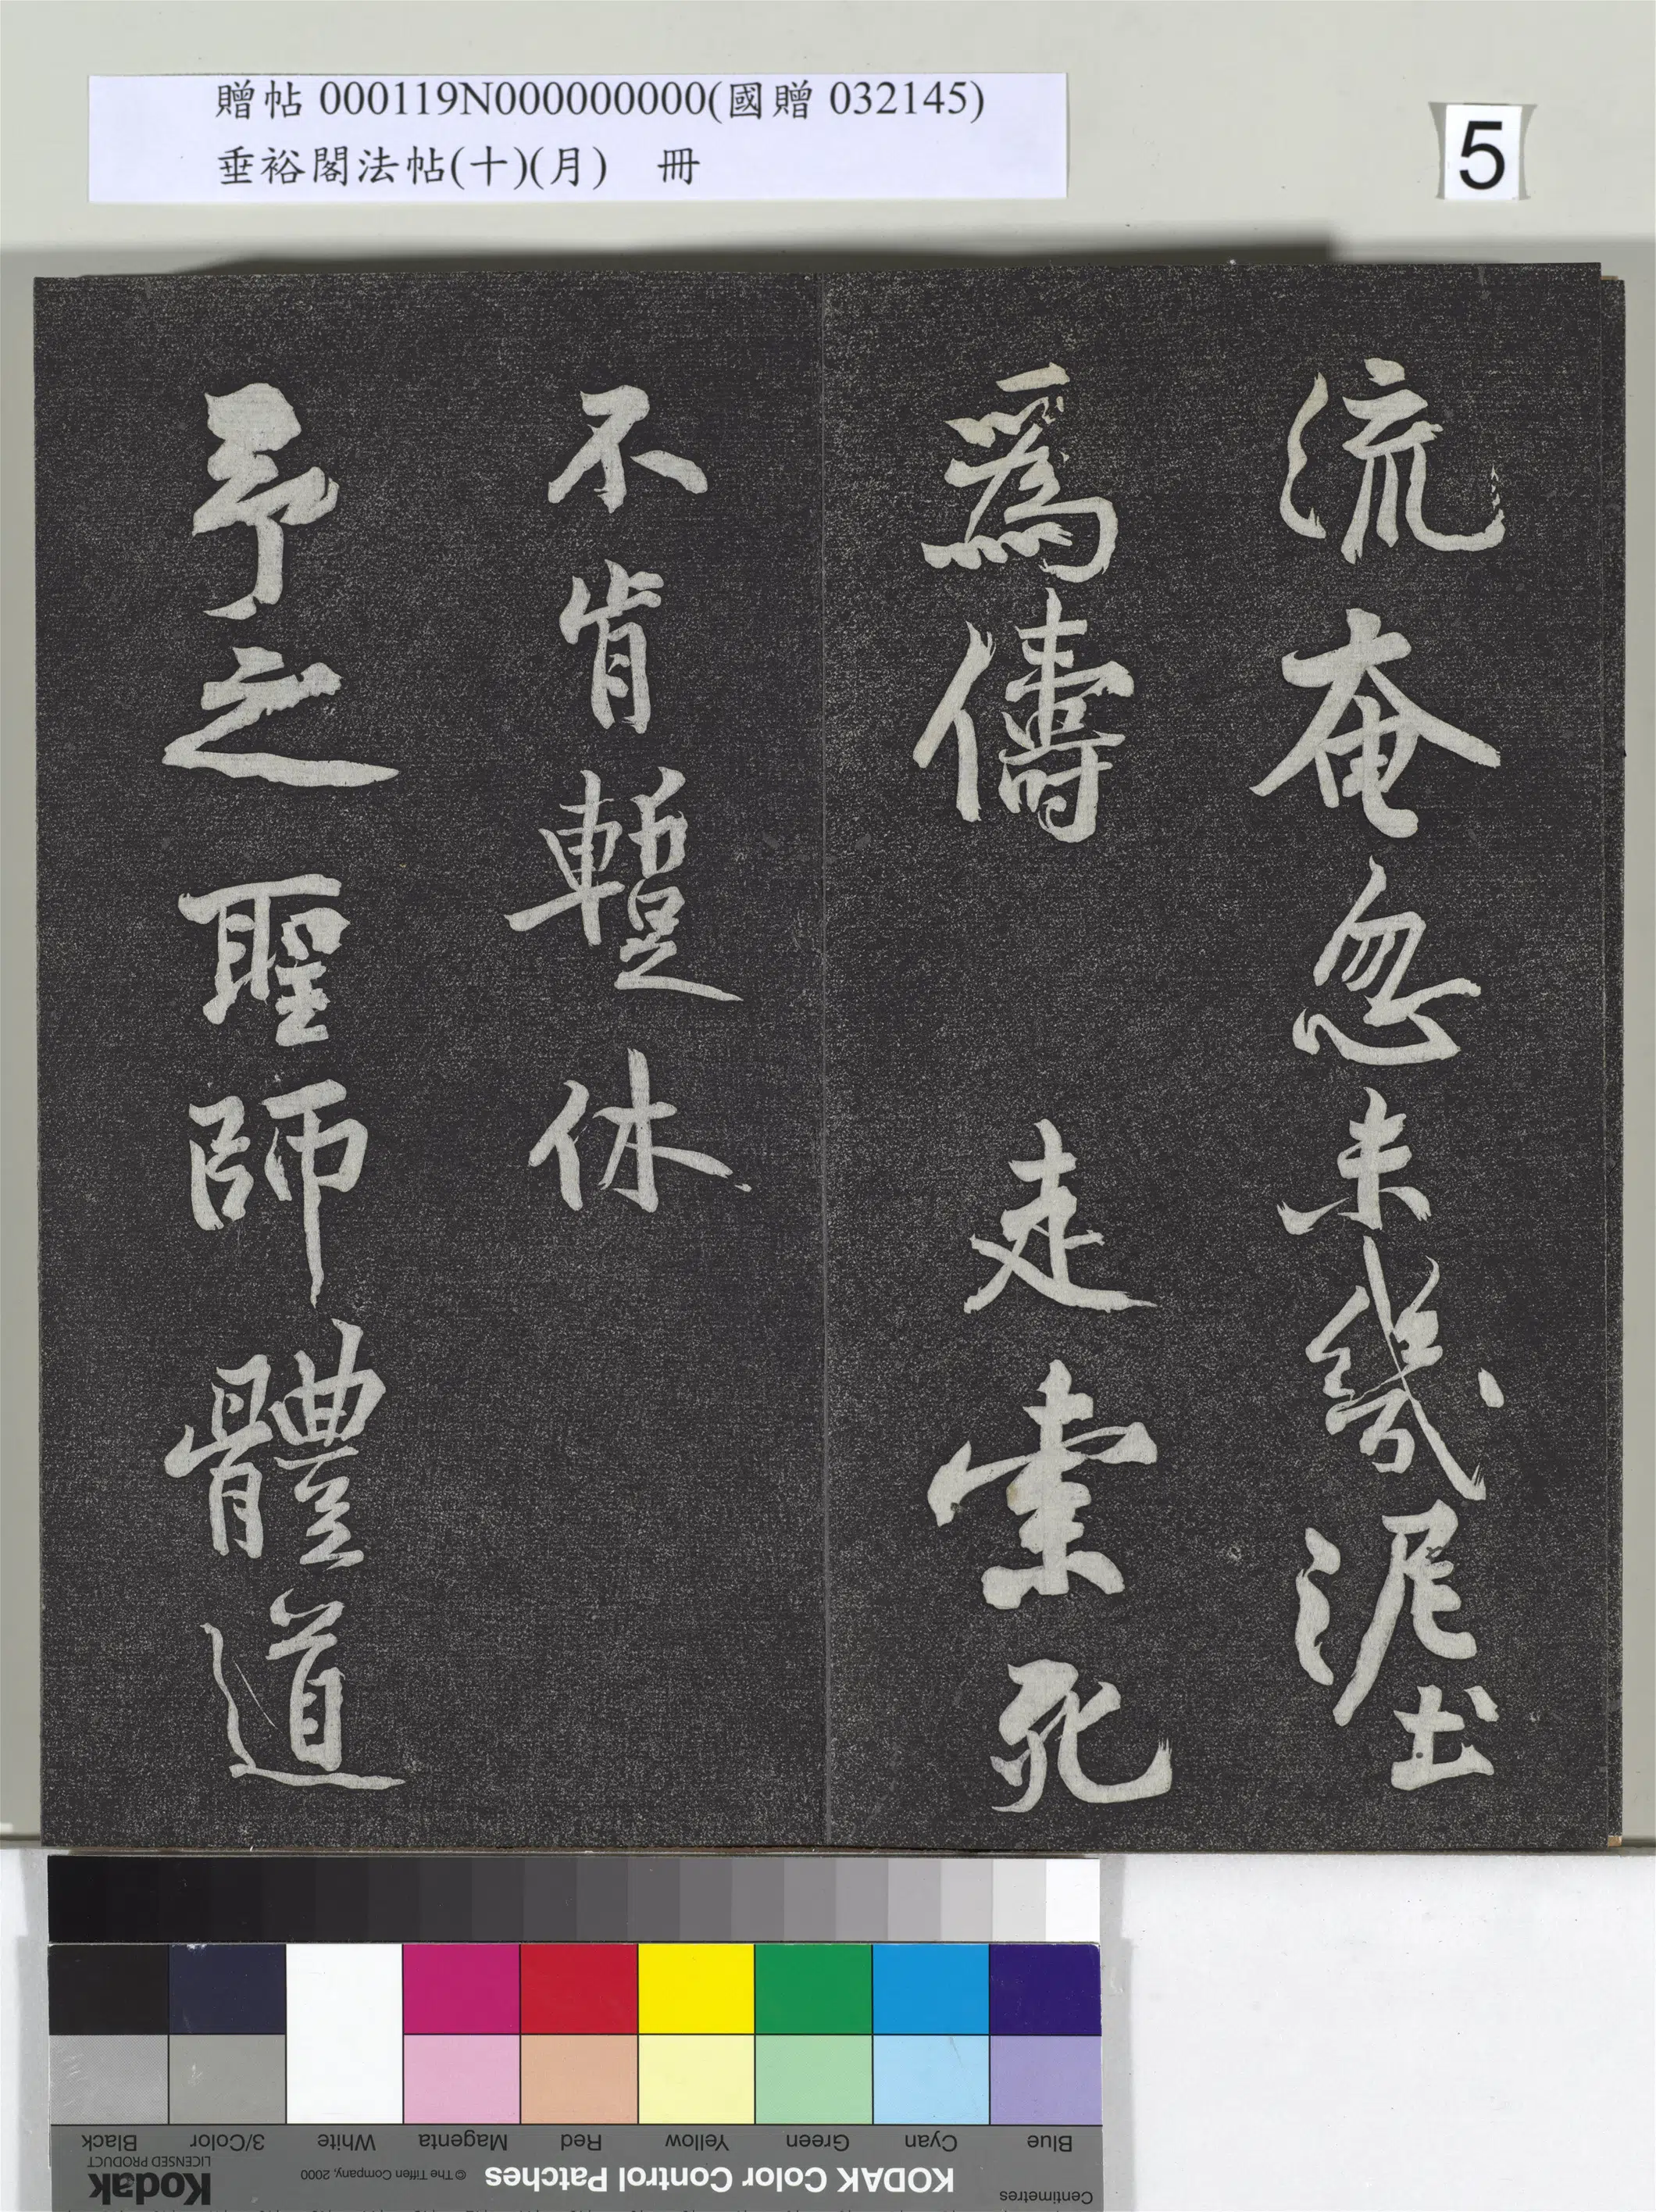 贈帖 000119N000000000(國贈 032145)
垂裕閣法帖(十)(月) 冊
5
流奄忽未幾泥土
為儔 走索死
不肯暫休
予之聖師體道
Blue Cyan Green Yellow Red Magenta White 3/Color Black
Centimetres KODAK Color Control Patches © The Tiffen Company, 2000 Kodak
LICENSED PRODUCT